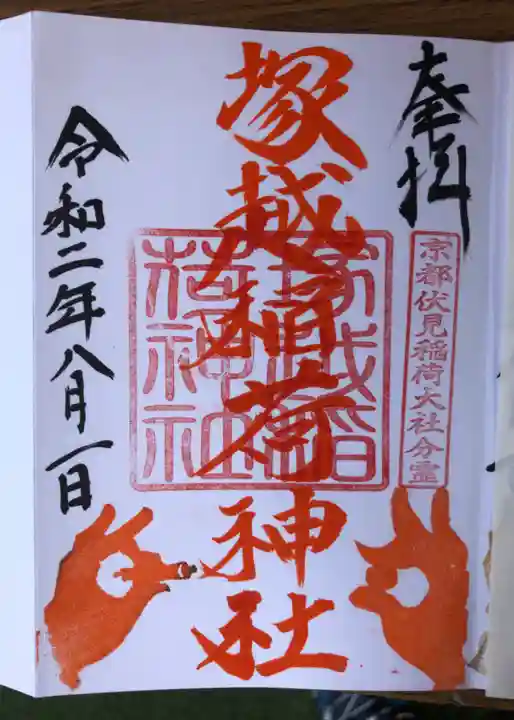 奉拝
京都伏見稲荷大社分霊
塚越稲荷神社
令和二年八月一日